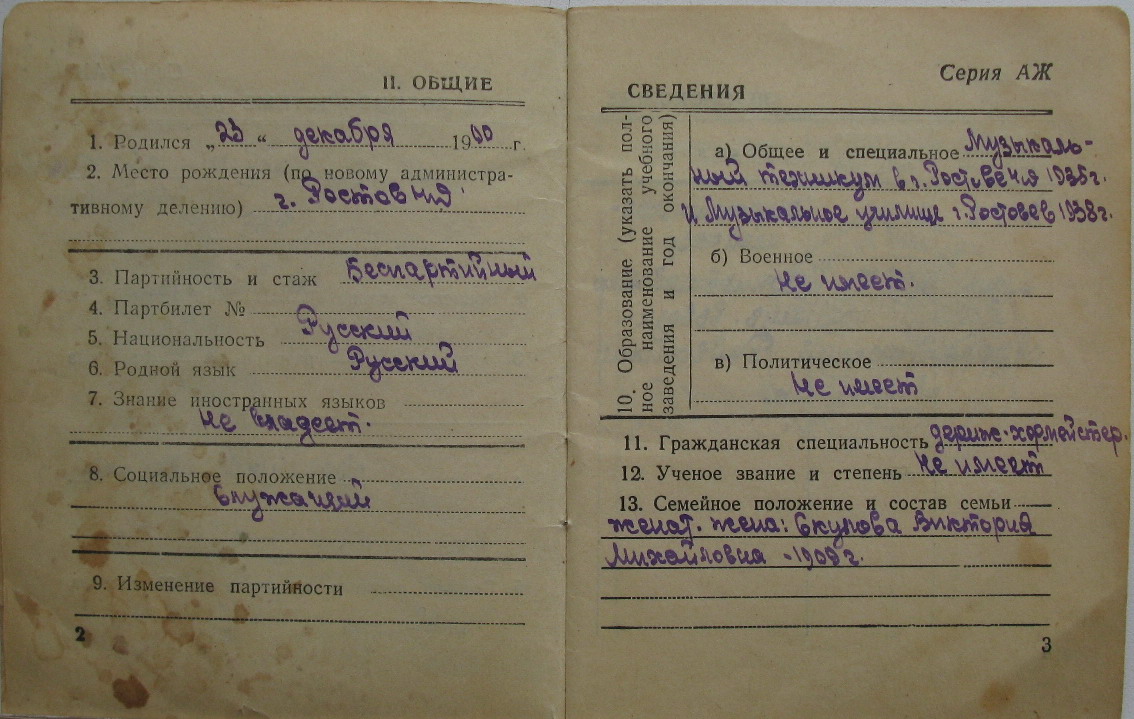 II. ОБЩИЕ
1. Родился „23“ декабря 1900 г.
2. Место рождения (по новому администра-
тивному делению) г. Ростов н/Д
3. Партийность и стаж Беспартийный
4. Партбилет №
5. Национальность Русский
6. Родной язык Русский
7. Знание иностранных языков
Не владеет.
8. Социальное положение
Служащий
9. Изменение партийности
2
Серия АЖ
СВЕДЕНИЯ
10. Образование (указать пол-
ное наименование учебного
заведения и год окончания)
а) Общее и специальное Музыкаль-
ный техникум в г. Ростове н/Д 1935 г.
и Музыкальное училище г. Ростов 1938 г.
б) Военное
Не имеет.
в) Политическое
Не имеет
11. Гражданская специальность дириж-хормейстер.
12. Ученое звание и степень Не имеет
13. Семейное положение и состав семьи
женат. жена: Виктория
Михайловна - 1909 г.
3